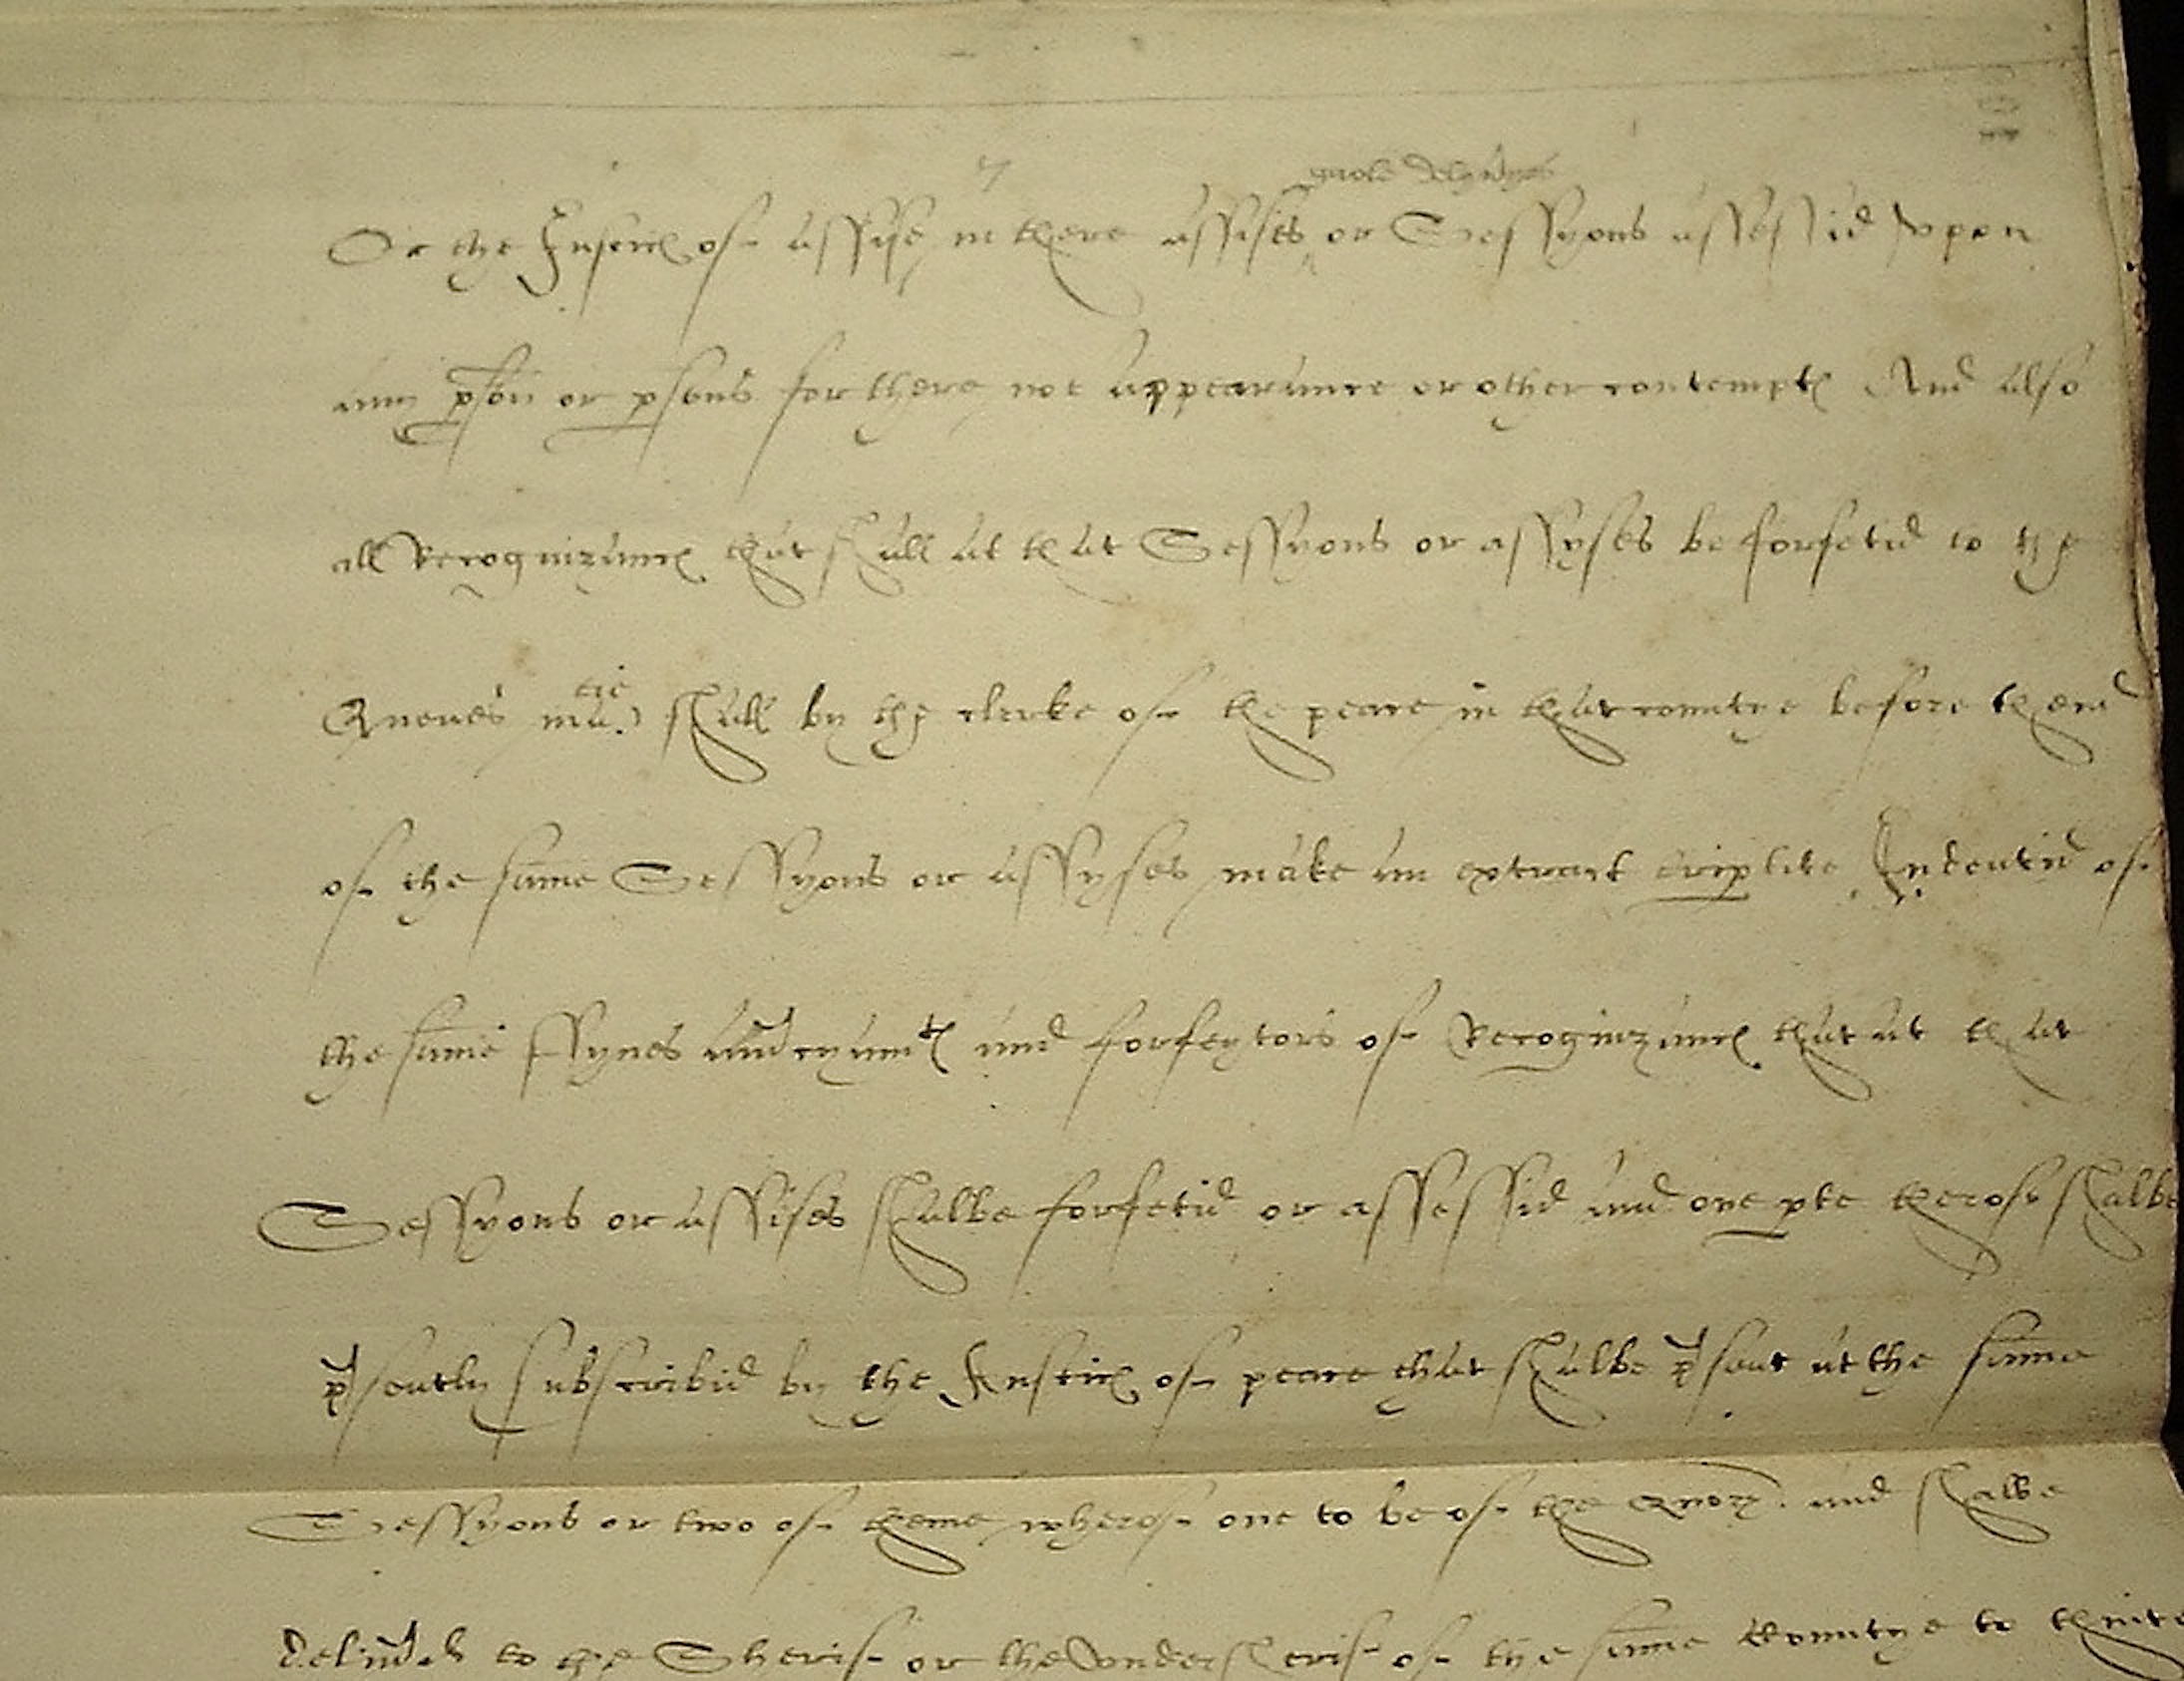 gaole delyueryes
Or the Justic of assise in there assises or Sessyons assessid vpon
any pson or psons for there not appearaunce or other contempt And also
all Recognizaunc that shall at that Sessyons or assyses be forfetid to the
Quenes matie shall by the clerke of the peace in that countye before thend
of the same Sessyons or assyses make an extract triplite Indentid of
the same ffynes amercyamt and forfeytors of Recognizaunc that at that
Sessyons or assises shalbe forfetid or assessid and one pte therof shalbe
psently subscribid by the Justic of peace that shalbe psent at the same
Sessyons or two of theme wherof one to be of the Quor and shalbe
deliued to the Sherif or the Vndersherif of the same countye to